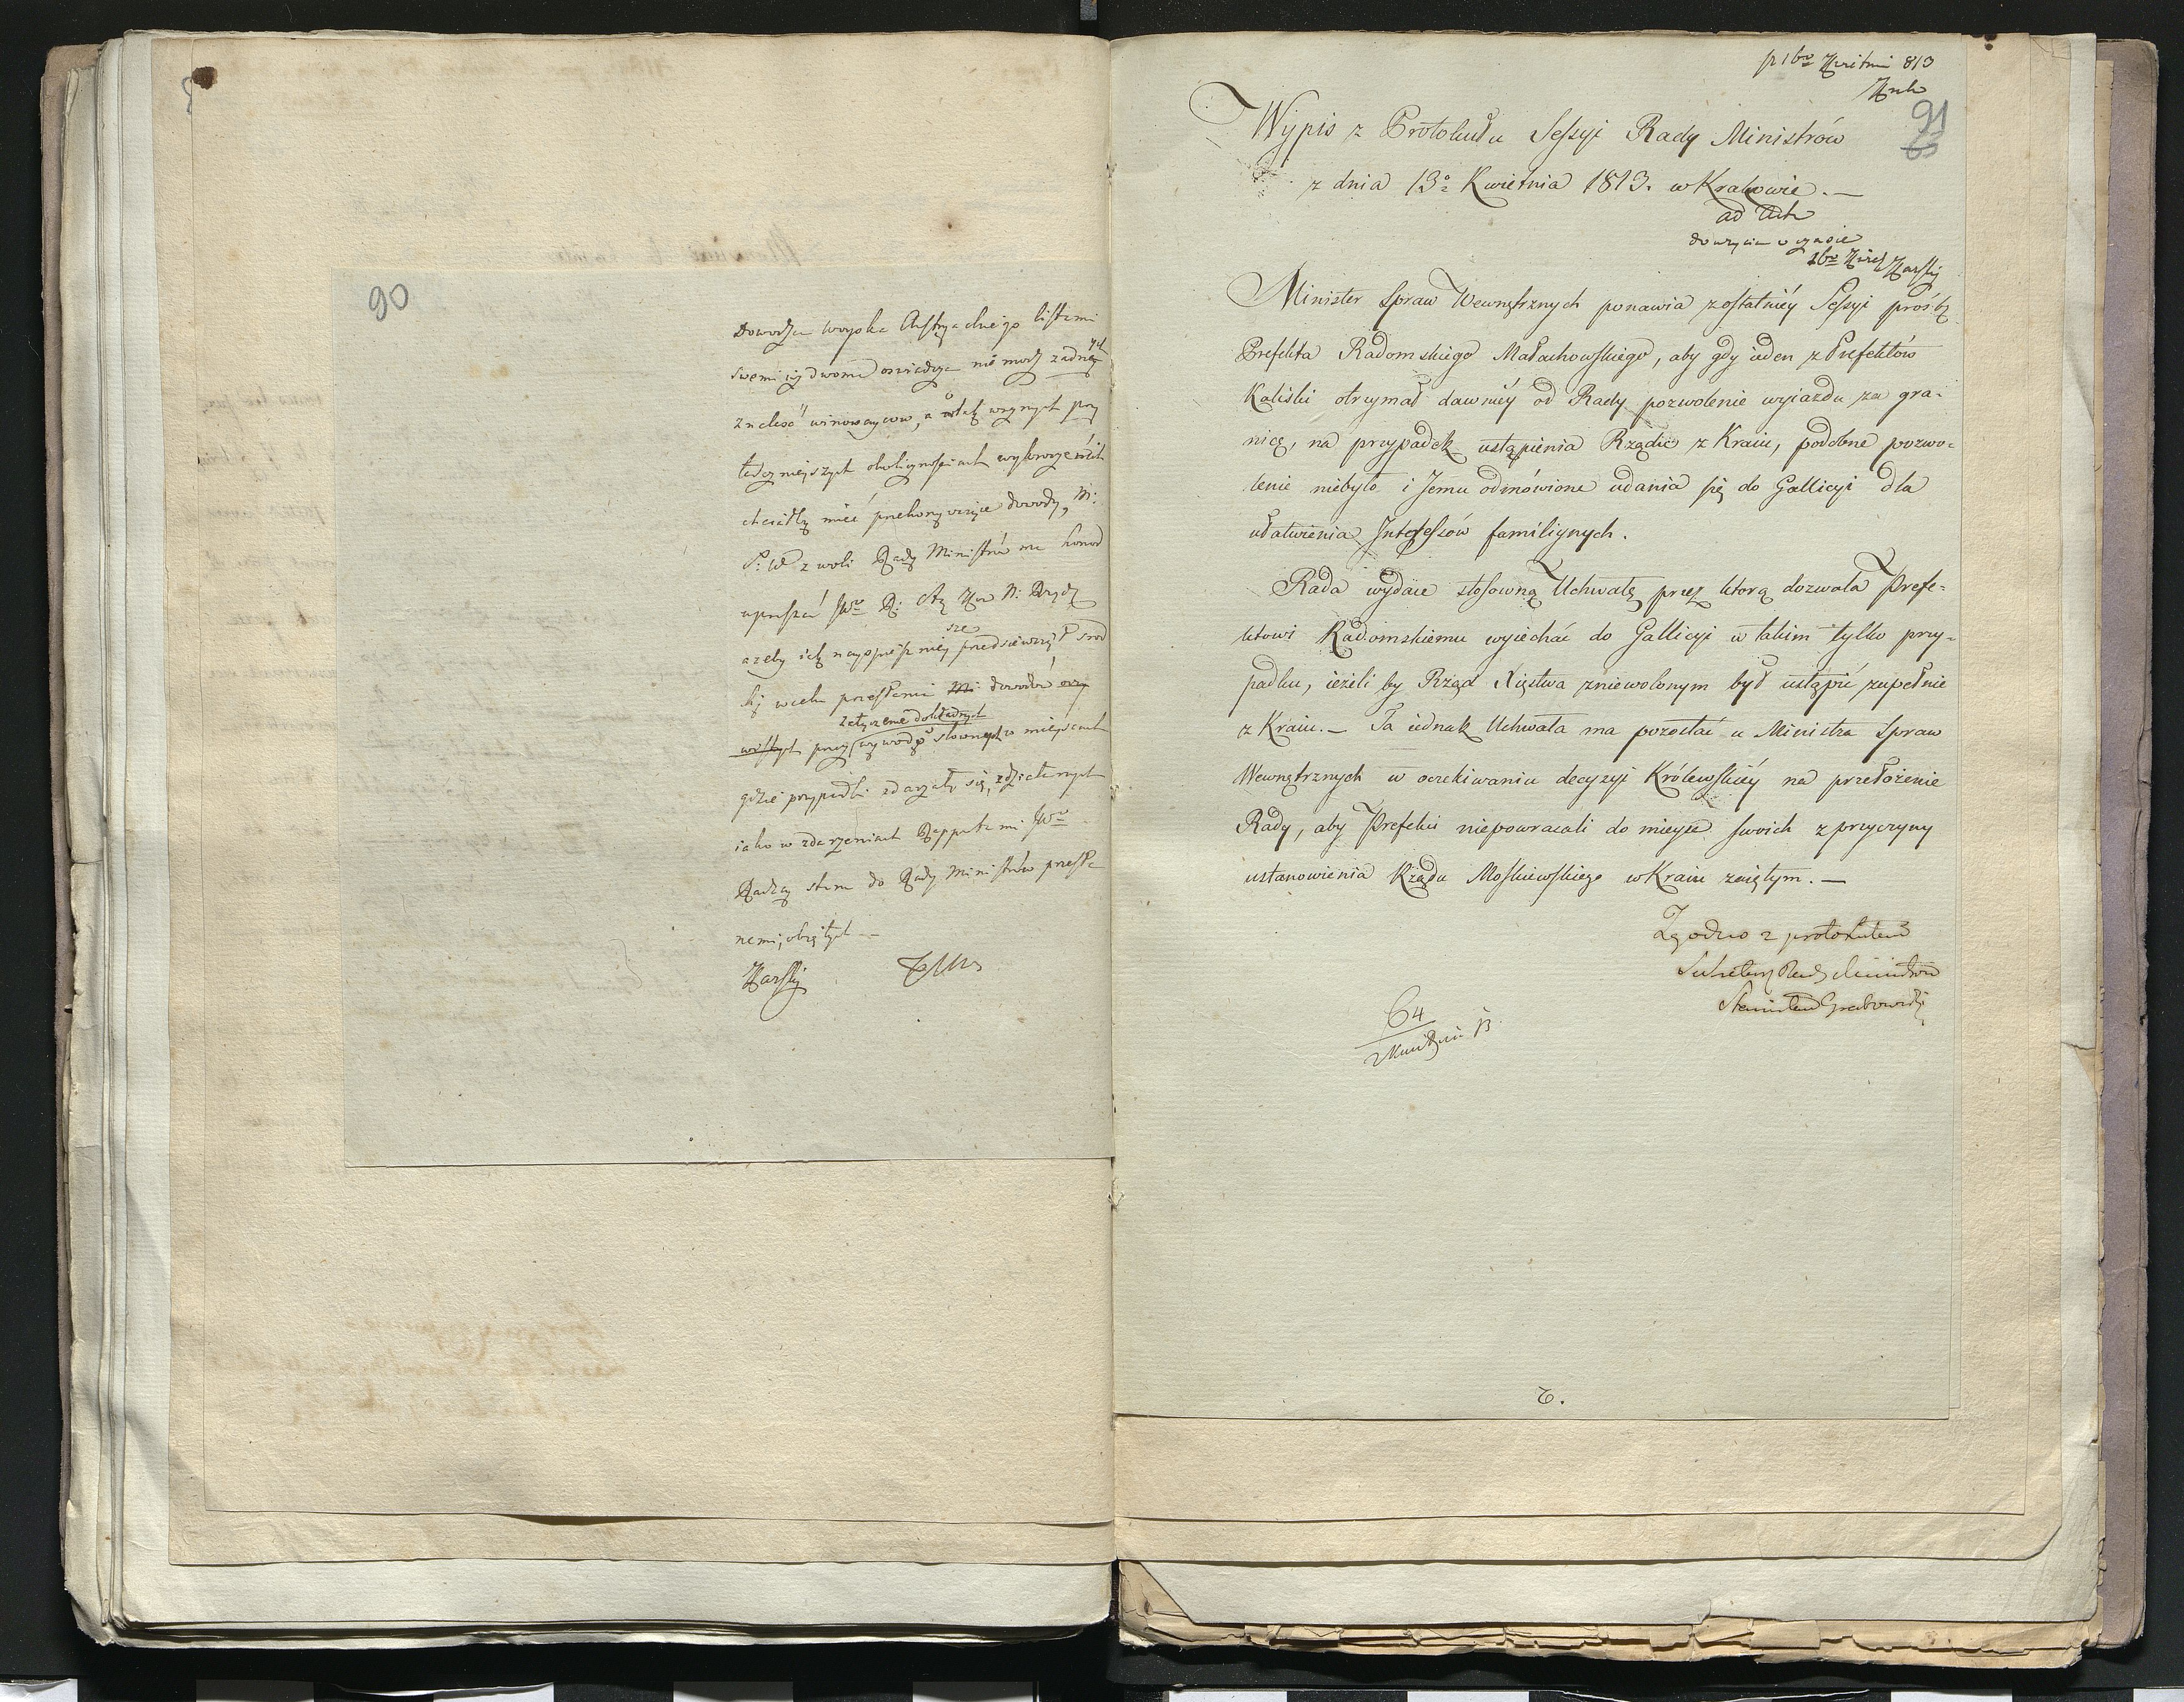 90
Dowodzca woyska Austryackiego listami
swemi iuż dwoma oswiadcza nie módz żadnych
znaleść winowaycow, a
chciałby mieć przekonywaiące dowody, M:
S: W z woli Rady Ministrów ma honor
upraszać JWo
azeby iak nayspiesznieysze przedsiewziął srod
ki w celu przesłania dowodów
załączenie dokładnych
przy wywodzie słownych w mieyscach
gdzie przypadki zdarzały się, zdziałanych
iako w zdarzeniach Rapportami JWo
Radcy stanu do Rady Ministrów przesła
nemi, obiętych —
Karski
p 16go Kwietnia 813
91
Wypis z Protokułu Sessyi Rady Ministrów
z dnia 13o Kwietnia 1813. w Krakowie. —
ad acta
do użycia w czasie
16o Kwiet Karski
Minister Spraw Wewnętrznych ponawia z ostatniéy Sessyi prośbę
Prefekta Radomskiego Małachowskiego, aby gdy ieden z Prefektów
Kaliski otrzymał dawniéy od Rady pozwolenie wyiazdu za gra-
nicę, na przypadek ustąpienia Rządu z Kraiu, podobne pozwo-
lenie niebyło i Jemu odmówione udania się do Gallicyi dla
ułatwienia Interessów familiynych.
Rada wydaie stosowną Uchwałę przez ktorą dozwala Prefe-
ktowi Radomskiemu wyiechać do Gallicyi w takim tylko przy-
padku, ieżeli by Rząd Xięstwa zniewolonym był ustąpić zupełnie
z Kraiu. — Ta iednak Uchwała ma pozostać u Ministra Spraw
Wewnętrznych w oczekiwaniu decyzyi Królewskiéy na przełożenie
Rady, aby Prefekci niepowracali do mieysc swoich z przyczyny
ustanowienia Rządu Moskiewskiego w Kraiu zaiętym. —
Zgodno z protokułem
Sekretarz Rady Ministrów
Stanisław Grabowski
64